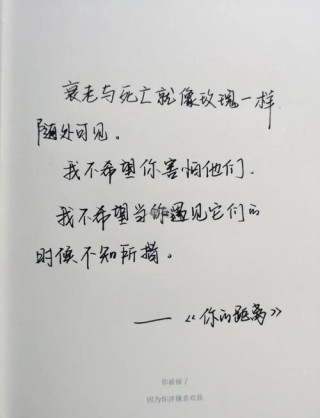 衰老与死亡就像玫瑰一样
随处可见。
我不希望你害怕他们.
我不希望当你遇见它们的
时候不知所措。
——《你的距离》
你被撩了
因为你讲镰表收我